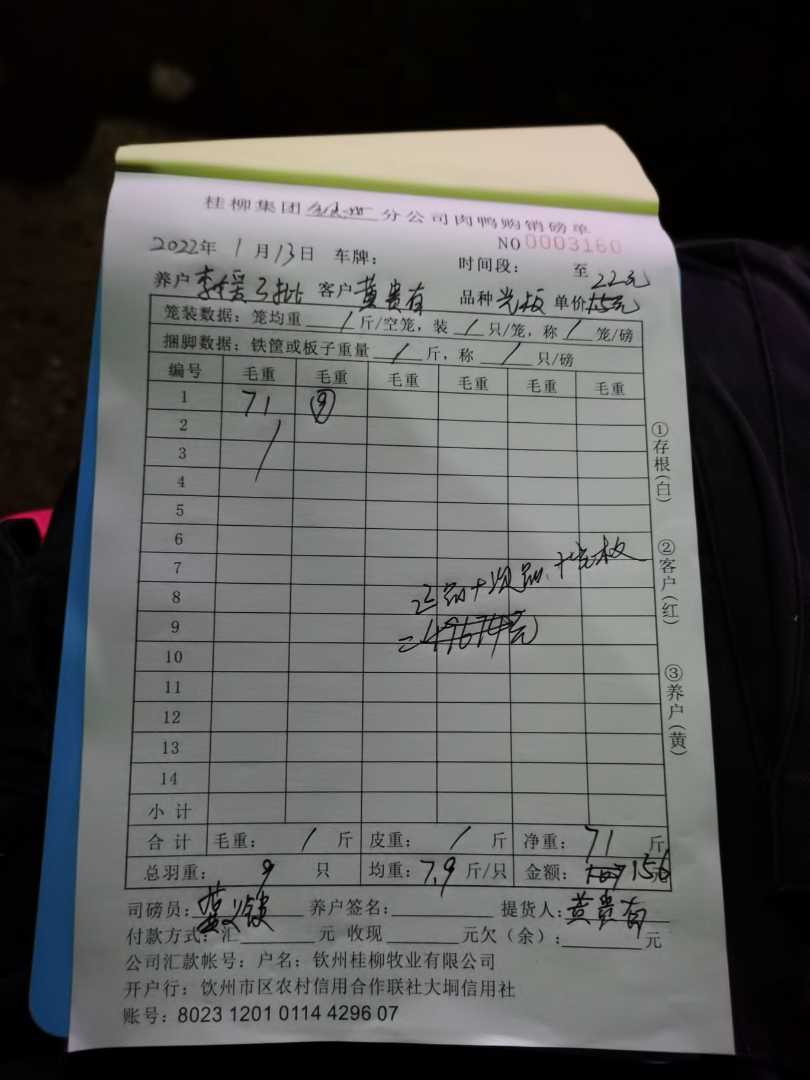 桂柳集团 分公司肉鸭购销磅单
NO 0003160
2022年 1月13日 车牌： 时间段： 至
22元
养户 李 批 客户 黄贵有 品种 光板 单价 1.5元
笼装数据：笼均重 / 斤/空笼，装 / 只/笼，称 / 笼/磅
捆脚数据：铁筐或板子重量 / 斤，称 / 只/磅
编号 毛重 毛重 毛重 毛重 毛重 毛重
1 71 ⑨
2
3
4
5
6
7
8
9
10
11
12
13
14
正品+次品+光板
=
小计
合计 毛重： / 斤 皮重： / 斤 净重： 71 斤
总羽重： 9 只 均重： 7.9 斤/只 金额： 156 元
司磅员： 养户签名： 提货人： 黄贵有
付款方式：汇 元 收现 元欠（余）： 元
公司汇款帐号：户名：钦州桂柳牧业有限公司
开户行：钦州市区农村信用合作联社大垌信用社
账号：8023 1201 0114 4296 07
①存根(白)
②客户(红)
③养户(黄)